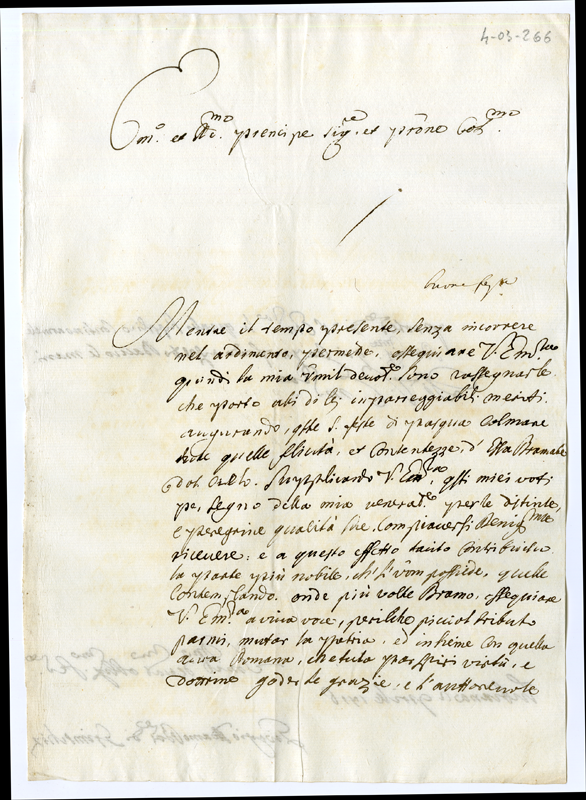 4-03-266
Em.º et R.mo Prencipe Sig.re et Prõne Col.mo
buone feste
Mentre il tempo presente, senza incorrere
nel ardimento, permette, ossequiare V. Em.za
quindi la mia umil devot.e sono rassegnarle
che porto alti di lei impareggiabili meriti
augurando, q.ste S. feste di Pasqua colmare
tutte quelle felicità, et contentezze, d' Essa Bramate
dal Cielo. Supplicando V. Em.za q.sti miei voti
per segno della mia venerat.e per le distinte,
e peregrine qualità sue. compiacersi Benig.mte
ricevere: e a questo effetto tanto contribuische
la parte più nobile, ch' l' uom possiede, quelle
contemplando. onde più volte Bramo, ossequiare
V. Em.za a viva voce, perilche picciol tributo
parmi, mutar la patria, ed insieme con quella
aura Romana, che tutta virtù, e
Dottrine goder le grazie, e l'auttorevole